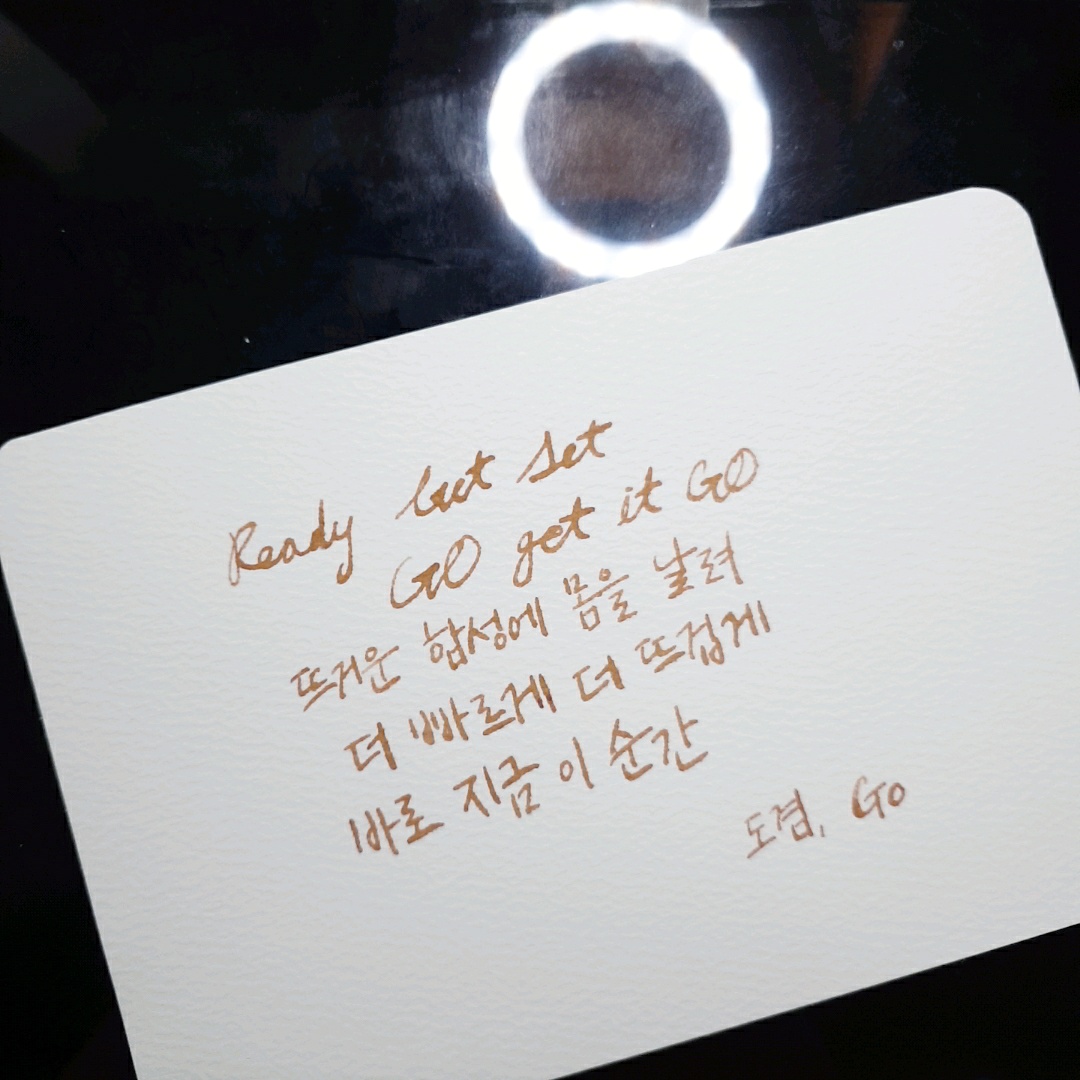 Ready but set
GO get it GO
뜨거운 함성에 몸을 날려
더 빠르게 더 뜨겁게
바로 지금 이 순간
도겸, Go